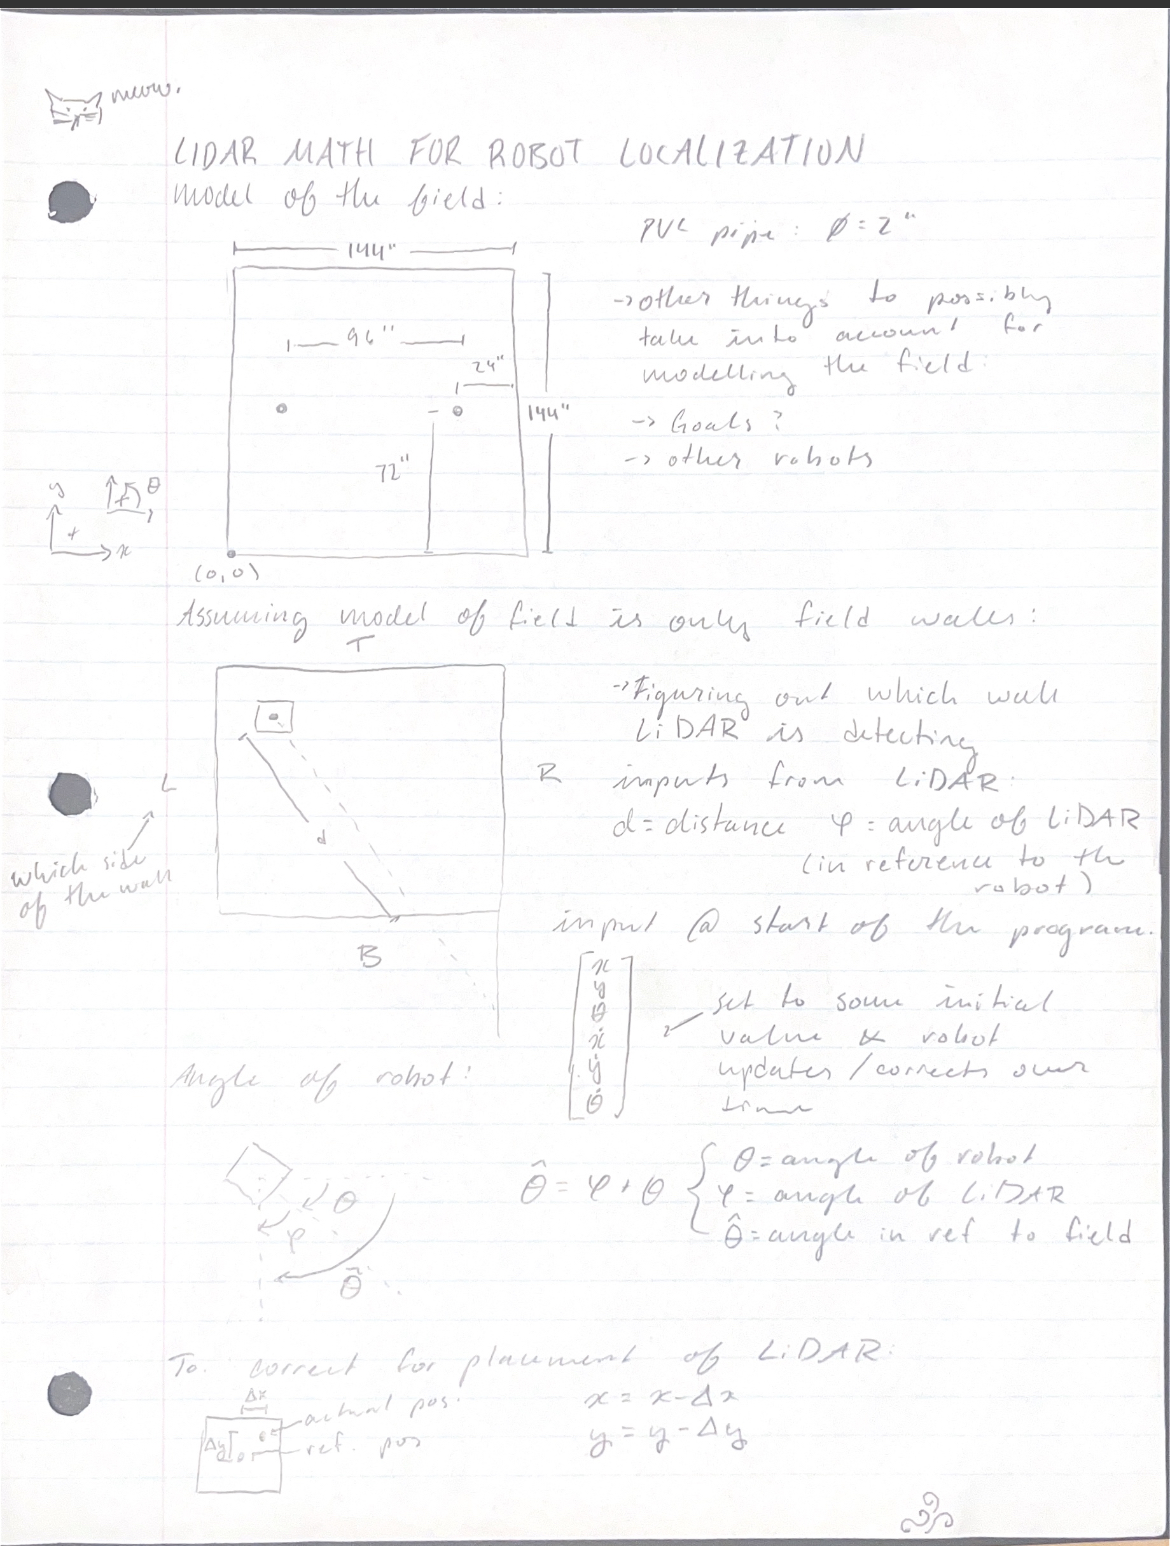 meow.
LIDAR MATH FOR ROBOT LOCALIZATION
Model of the field:
PVC pipe: Ø = 2"
144"
→ other things to possibly
take into account for
modelling the field:
96"
24"
144"
→ Goals?
→ other robots
72"
y
θ
+
x
(0,0)
Assuming model of field is only field walls:
T
→ Figuring out which wall
LiDAR is detecting
L
R
inputs from LiDAR:
d = distance φ = angle of LiDAR
(in reference to the
robot)
d
which side
of the wall
B
input @ start of the program.
x
y
θ
ẋ
ẏ
θ̇
set to some initial
value & robot
updates / corrects over
time
Angle of robot:
θ̂ = φ + θ
θ = angle of robot
φ = angle of LiDAR
θ̂ = angle in ref to field
θ
φ
θ̂
To correct for placement of LiDAR:
Δx
Δy
actual pos.
ref. pos
x = x - Δx
y = y - Δy